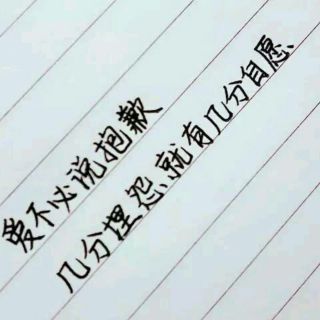 爱不必说抱歉
几分埋怨、就有几分自愿、